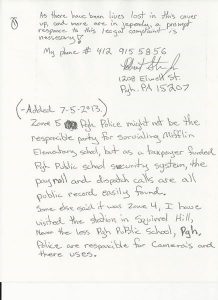 As there have been lives lost in this cover
up, and more are in jepordy, a prompt
responce to this leagal complaint is
neccessary!
My phone # 412 915 5856
1208 Elwell St.
Pgh. PA 15207
(-Added 7-5-2013)
Zonne 5 Pgh Police might not be the
respecible party for servialing Mifflin
Elementary schol, but as a taxpayer funded
Pgh Public school security system, the
payroll and dispatch calls are all
public record easily found.
Some else said it was Zone 4, I have
visited the station in Squirrel Hill,
None the less Pgh Public School, Pgh.
Police are resposible for Camera's and
there uses.